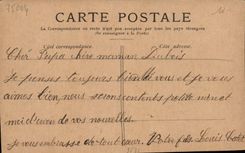 CARTE POSTALE
La Correspondance au recto n'est pas acceptée par tous les pays étrangers
(Se renseigner à la Poste)
Côté correspondance. Côté adresse.
Cher Papa chère maman
Je pense toujours bien à vous et je vous
aimes bien nous serons contents petite mère et
meilleures de vos nouvelles.
Je vous embrasse de tout cœur. Votre fils Louis